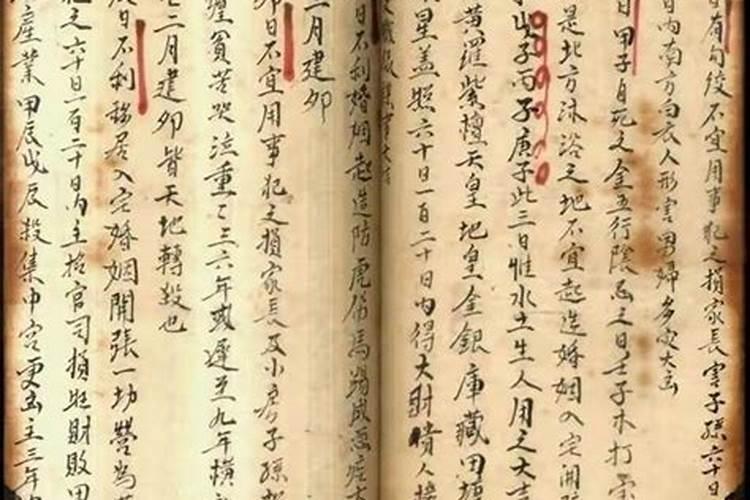 日有勾绞不宜用事犯之損家長害子孫六十日
日内南方白衣人形害男婦多灾大凶
日甲子自死之金五行陰忌之日壬子木打
是北方沐浴之地不宜起造婚姻入宅開
子丙子庚子此三日惟水土生人用之大吉
黄羅紫檀天皇地皇金銀庫藏田塘
星盖照六十日一百二十日内得大財貴人接
日不利婚姻起造防虎傷馬踢成
二月建卯
卯日不宜用事犯之損家長及小房子孫
貧苦哭泣重三六年或遲至九年横
二月建卯皆天地轉殺也
日不利移居入宅婚姻開張一切營為
犯之六十日一百二十日内主招官司損胎財敗田
産業甲辰戊辰殺集中宫更凶主三年